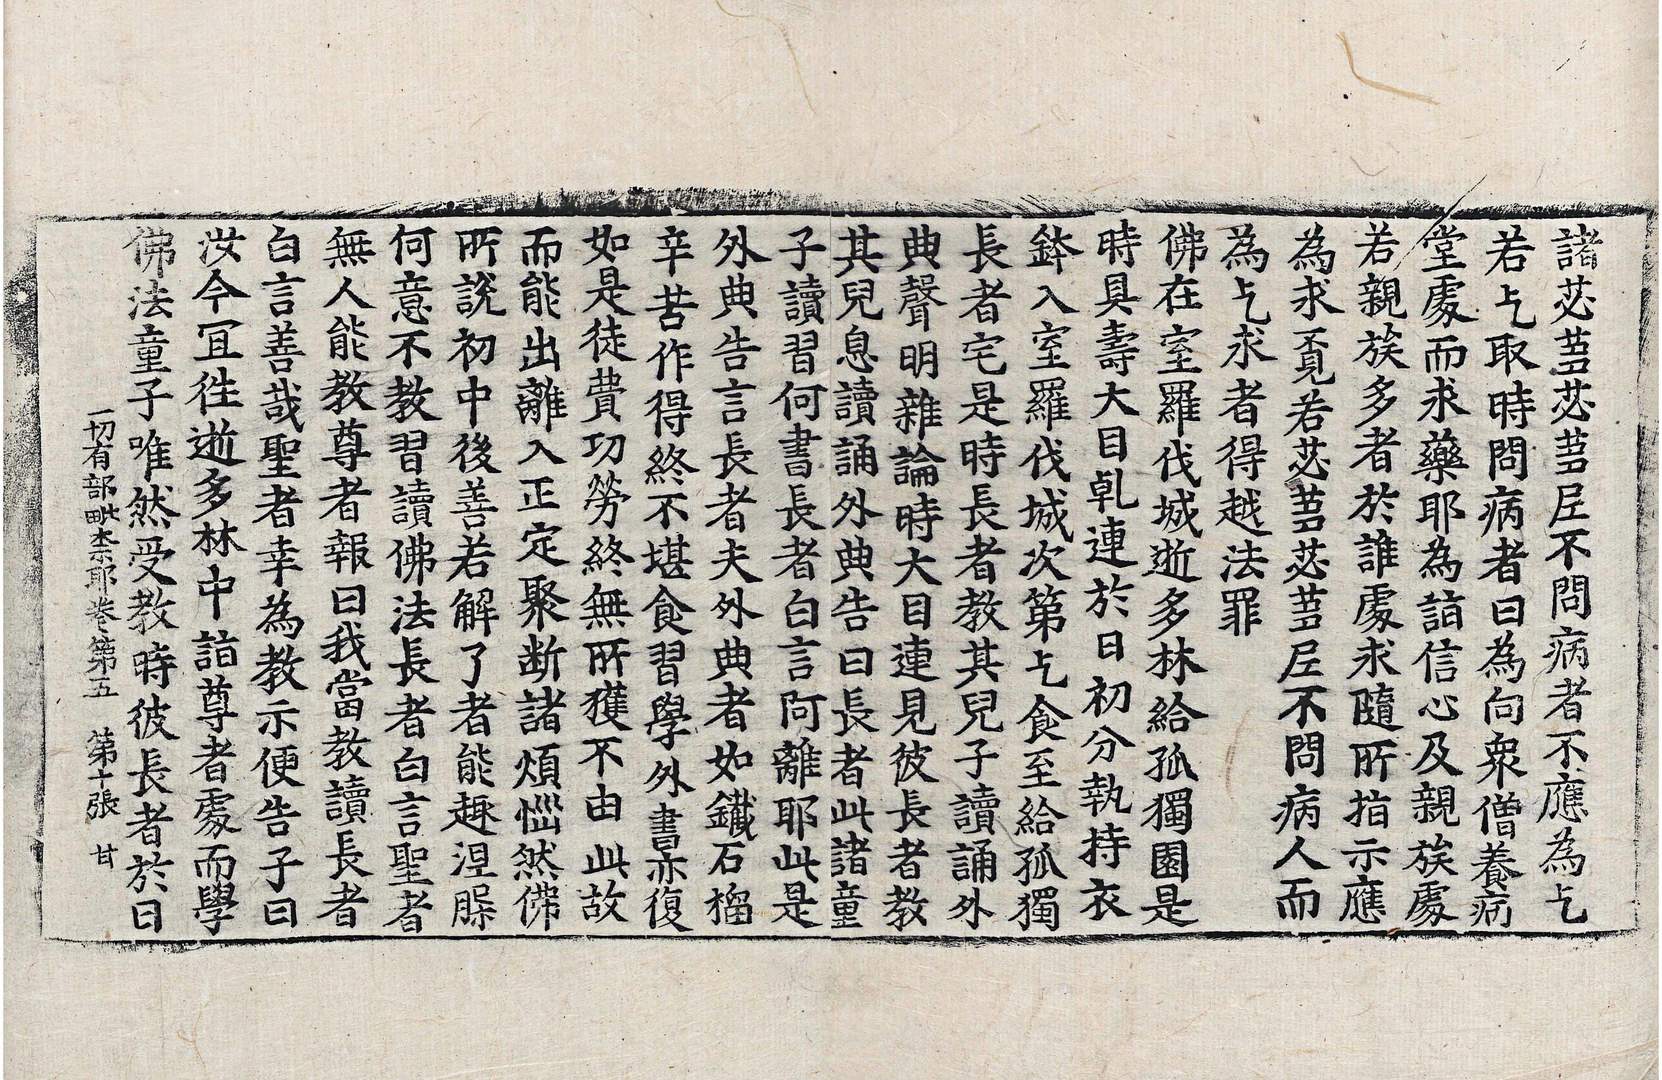 諸苾芻苾芻尼不問病者不應為乞
若乞取時問病者曰為向衆僧養病
堂處而求藥耶為詣信心及親族處
若親族多者於誰處求隨所指示應
為求覓若苾芻苾芻尼不問病人而
為乞求者得越法罪
佛在室羅伐城逝多林給孤獨園是
時具壽大目乹連於日初分執持衣
鉢入室羅伐城次第乞食至給孤獨
長者宅是時長者教其兒子讀誦外
典聲明雜論時大目連見彼長者教
其兒息讀誦外典告曰長者此諸童
子讀習何書長者白言阿離耶此是
外典告言長者夫外典者如鐵石榴
辛苦作得終不堪食習學外書亦復
如是徒費功勞終無所獲不由此故
而能出離入正定聚断諸煩惱然佛
所說初中後善若解了者能趣涅槃
何意不教習讀佛法長者白言聖者
無人能教尊者報曰我當教讀長者
白言善哉聖者幸為教示便告子曰
汝今冝徃逝多林中詣尊者處而學
佛法童子唯然受教時彼長者於日
一切有部毗柰耶卷第五 第十張 甘